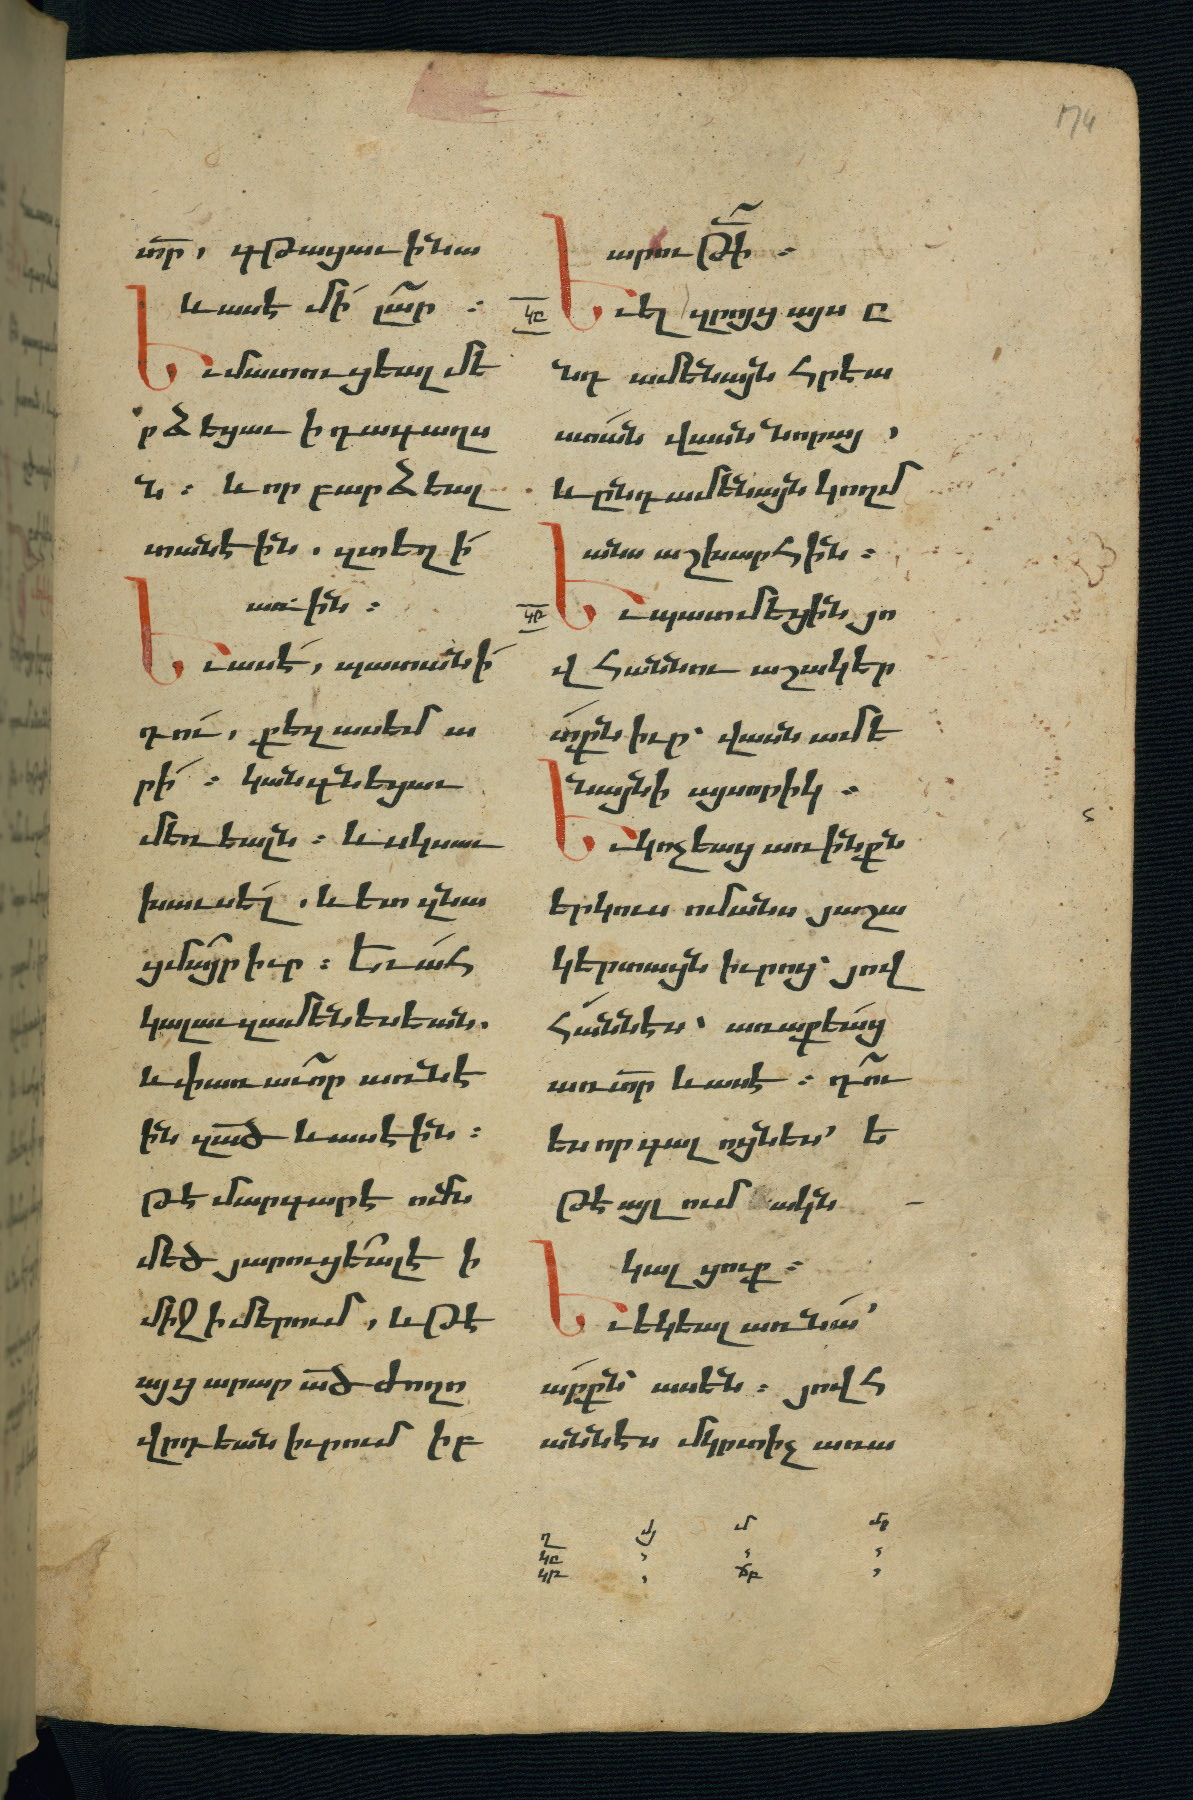 174
տր, գթացաւ ինա
և ասէ մի լար ։
Եւ մատուցեալ մե
րձեցաւ ի դագաղս
ն ։ և որ բարձեալ
տանէին, զտեղի
առին ։
Եւ ասէ, պատանի
դու, քեզ ասեմ ա
րի ։ կանգնեցաւ
մեռեալն ։ և սկսաւ
խաւսել, և ետ զնա
ցմայր իւր ։ Եւ ահ
կալաւ զամենեսեան.
և փառաւոր առնէ
ին զած և ասէին ։
թէ մարգարէ ոմն
մեծ յարուցեալ է ի
միջի մերում, և թէ
այց արար ած ժողո
վրդեան իւրում ի բ
արութի ։
կը
Եւ ել զրոյց այս ը
նդ ամենայն հրեա
ստան վասն նորայ,
և ընդ ամենայն կողմ
անս աշխարհին ։
կթ
Եւ պատմեցին յո
վհաննու աշակեր
տքն իւր՝ վասն ամե
նայնի այսորիկ ։
Եւ կոչեաց առ ինքն
երկուս ոմանս յաշա
կերտացն իւրոց՝ յով
հաննես՝ առաքեաց
առ տր և ասէ ։ դու
ես որ գալոցն ես՝ ե
թէ այլում ակն
կալցուք ։
Եւ եկեալ առ նա՝
արքն՝ ասեն ։ յովհ
աննես մկրտիչ առա
ղ մյ մ մթ
կը , , ,
կթ , ճբ ,